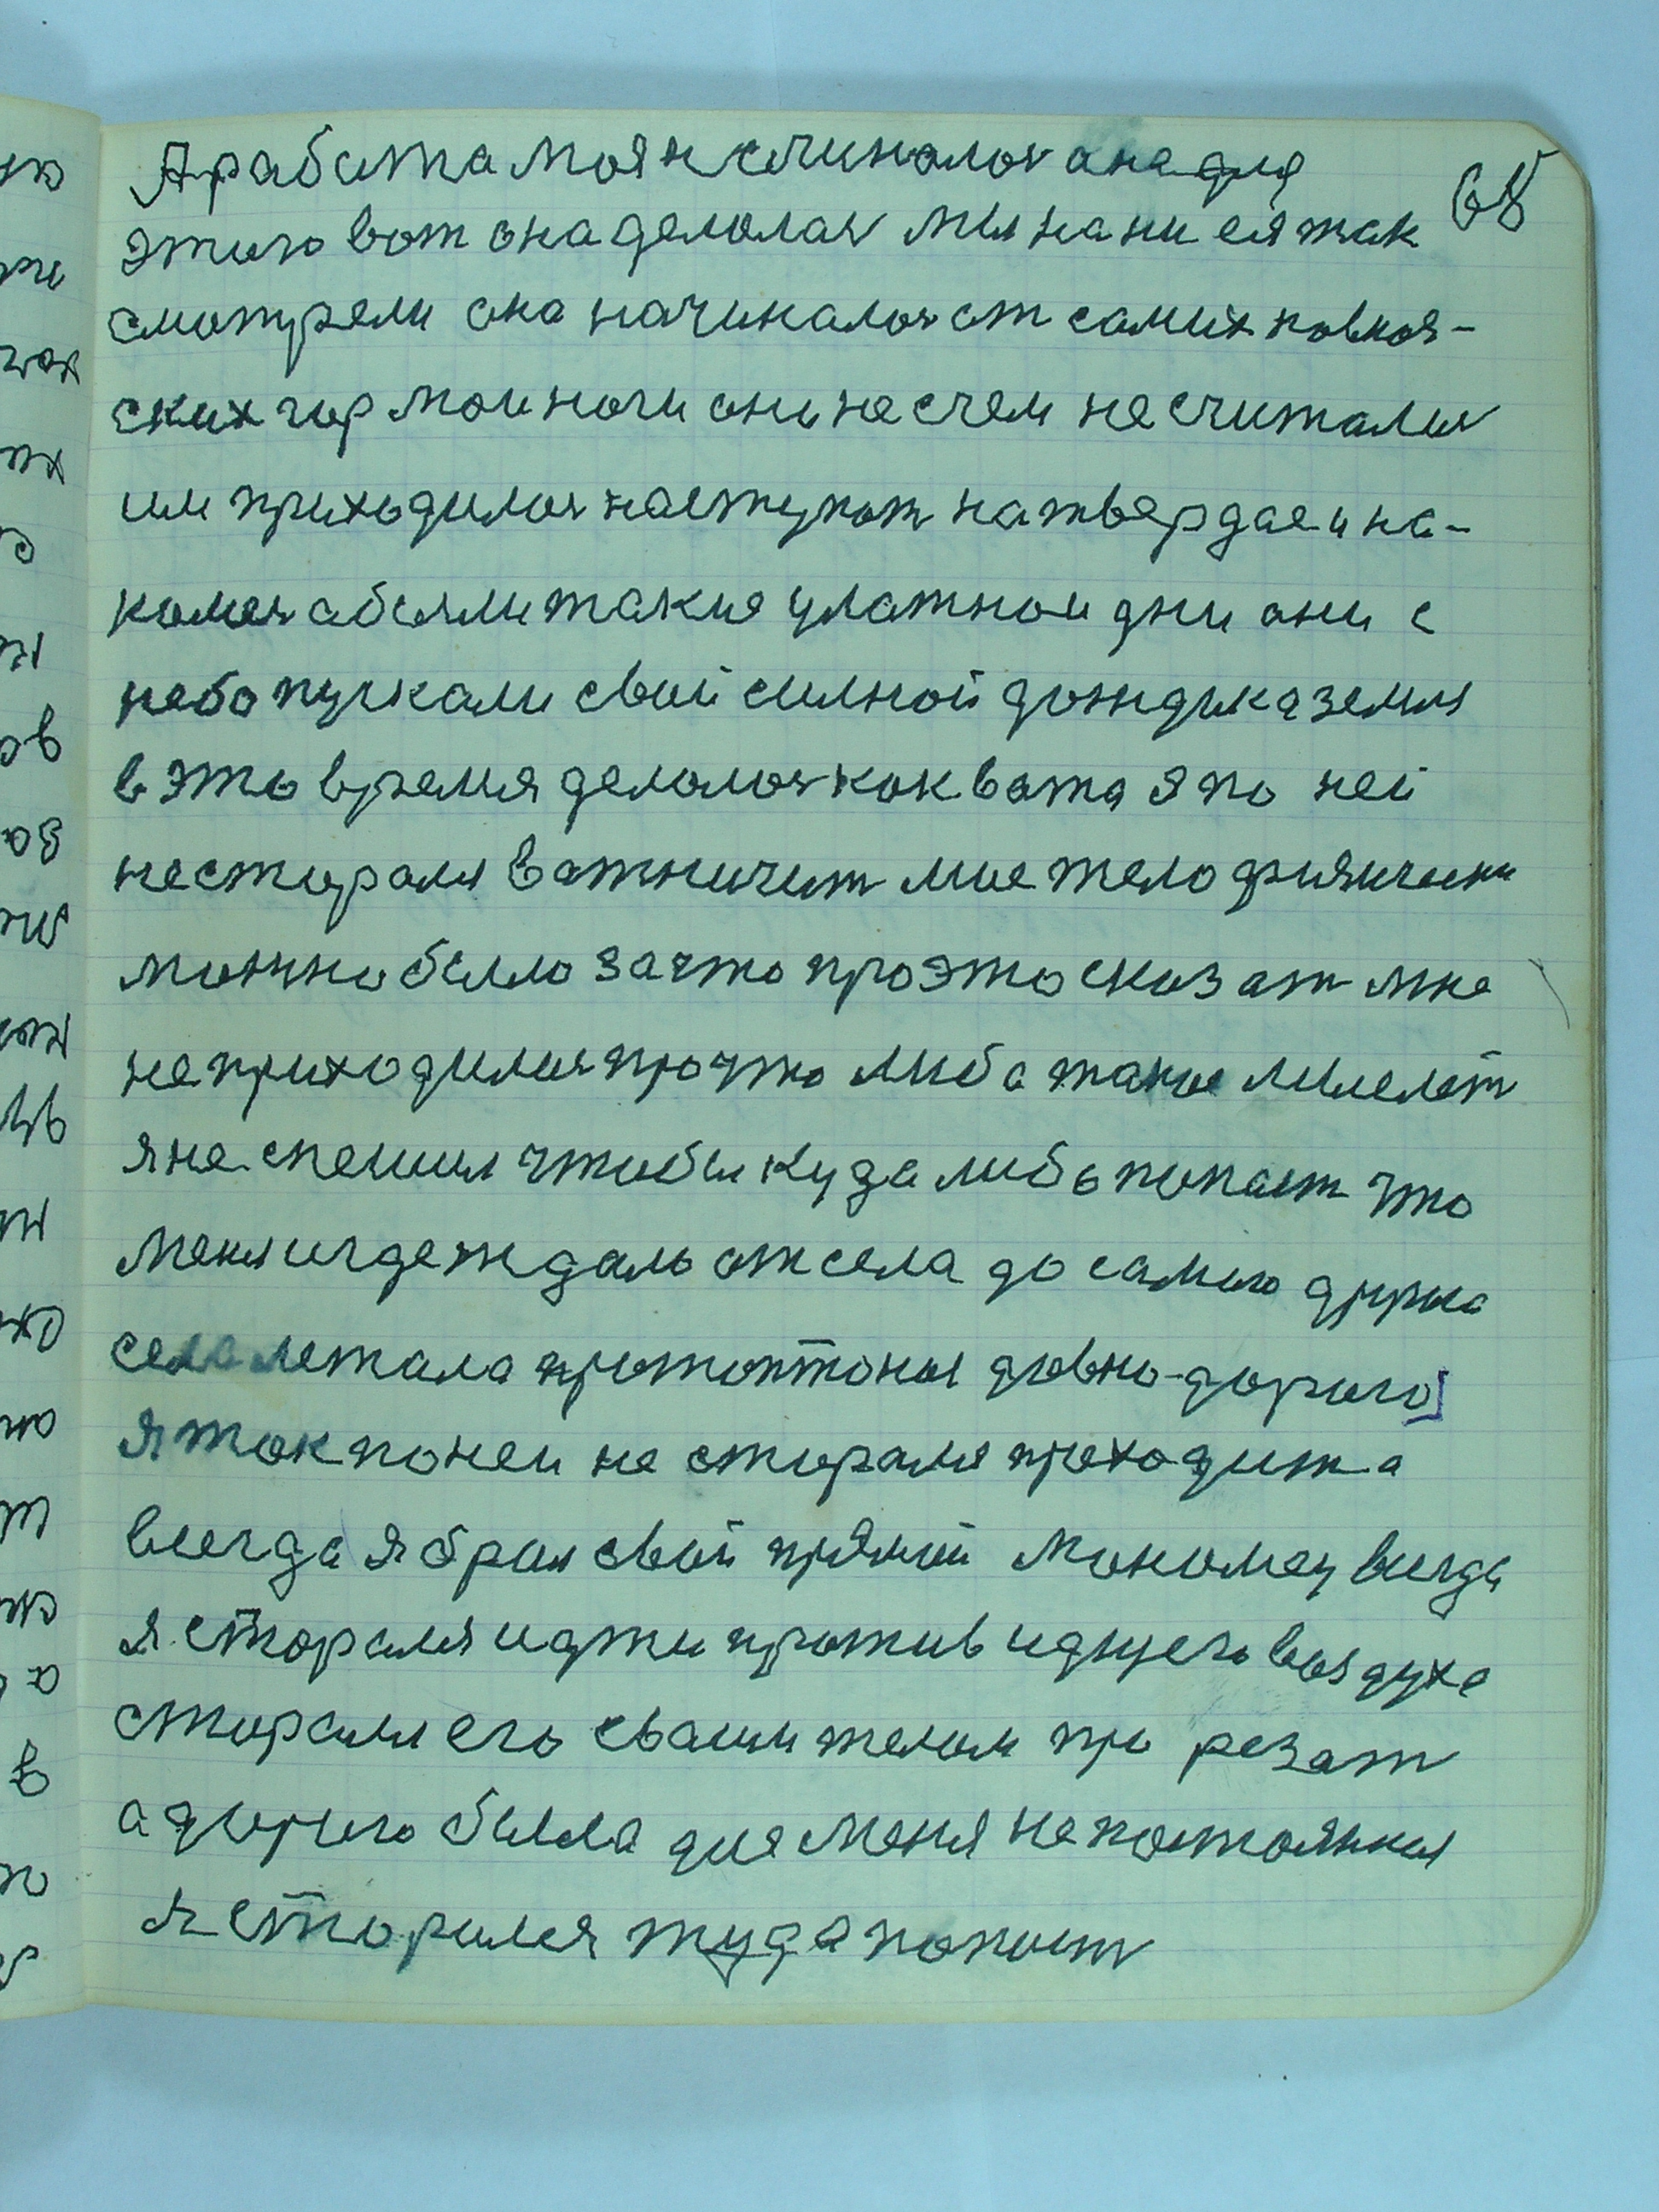 А работа моя не счиналоя она для
68
этого вот она делолая мы на ни ей так
смотрели она начиналоя от самих кавкоя-
ских гор мои ноги они не счем не считалия
им приходилоя наступат на твердае и на-
колея обыяли такие улатнои дни они с
неба пускали свой силной дождика земля
в это время делолоя как вата я по ней
не стораля в отничит мие тело физически
можно было за что про это сказат мне
не приходилоя про что либа такие мыслет
я не спешил чтобы куда либо попаст что
меня игде ждало от села до самого друго
села лежала протоптоная давно дорого
я так по неи не стораля проходит а
всегда я брал свой прямой мокомец всегда
я сторалия идти против идущего воздуха
сторалия его сваим телом про резат
а дорого была для меня не постояная
я сторилея туда попаст